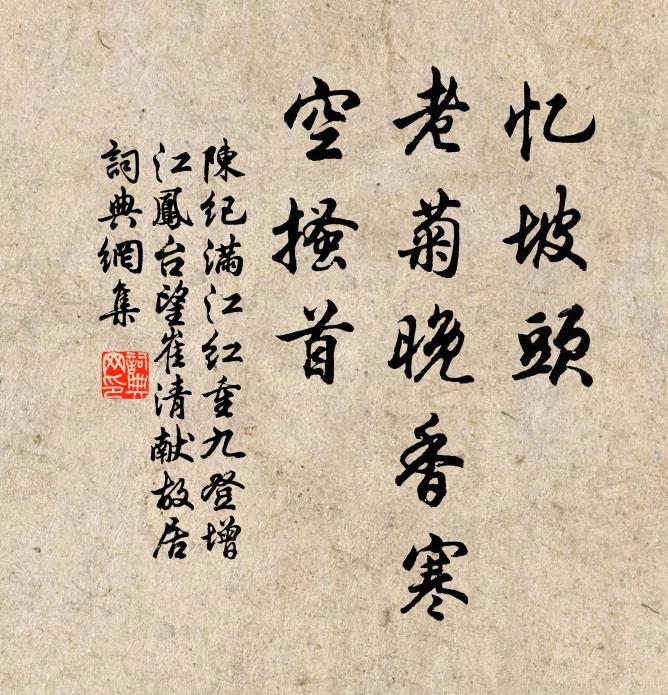 忆坡頭
老菊晚香寒
空搔首
陳紀满江红重九登增
江鳳台望崔清献故居
詞典網集
詞典网印